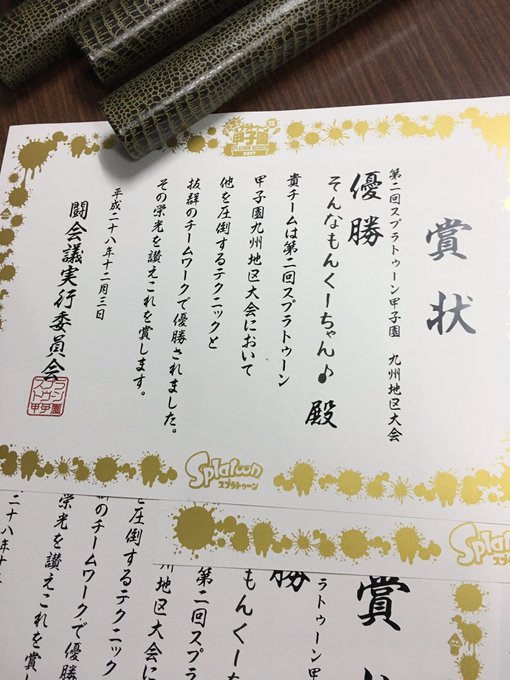 賞状
第二回スプラトゥーン甲子園 九州地区大会
優勝
そんなもんくーちゃん♪ 殿
貴チームは第二回スプラトゥーン
甲子園九州地区大会において
他を圧倒するテクニックと
抜群のチームワークで優勝されました。
その栄光を讃えこれを賞します。
平成二十八年十二月三日
闘会議実行委員会
スプラトゥーン甲子園
スプラトゥーン
甲子園
Splatoon
スプラトゥーン
Splatoon
賞状
ラトゥーン甲
優勝
もんくーち
第二回スプ
州地区大会に
を圧倒するテクニック
群のチームワークで優勝
栄光を讃えこれを賞し
二十八年十二